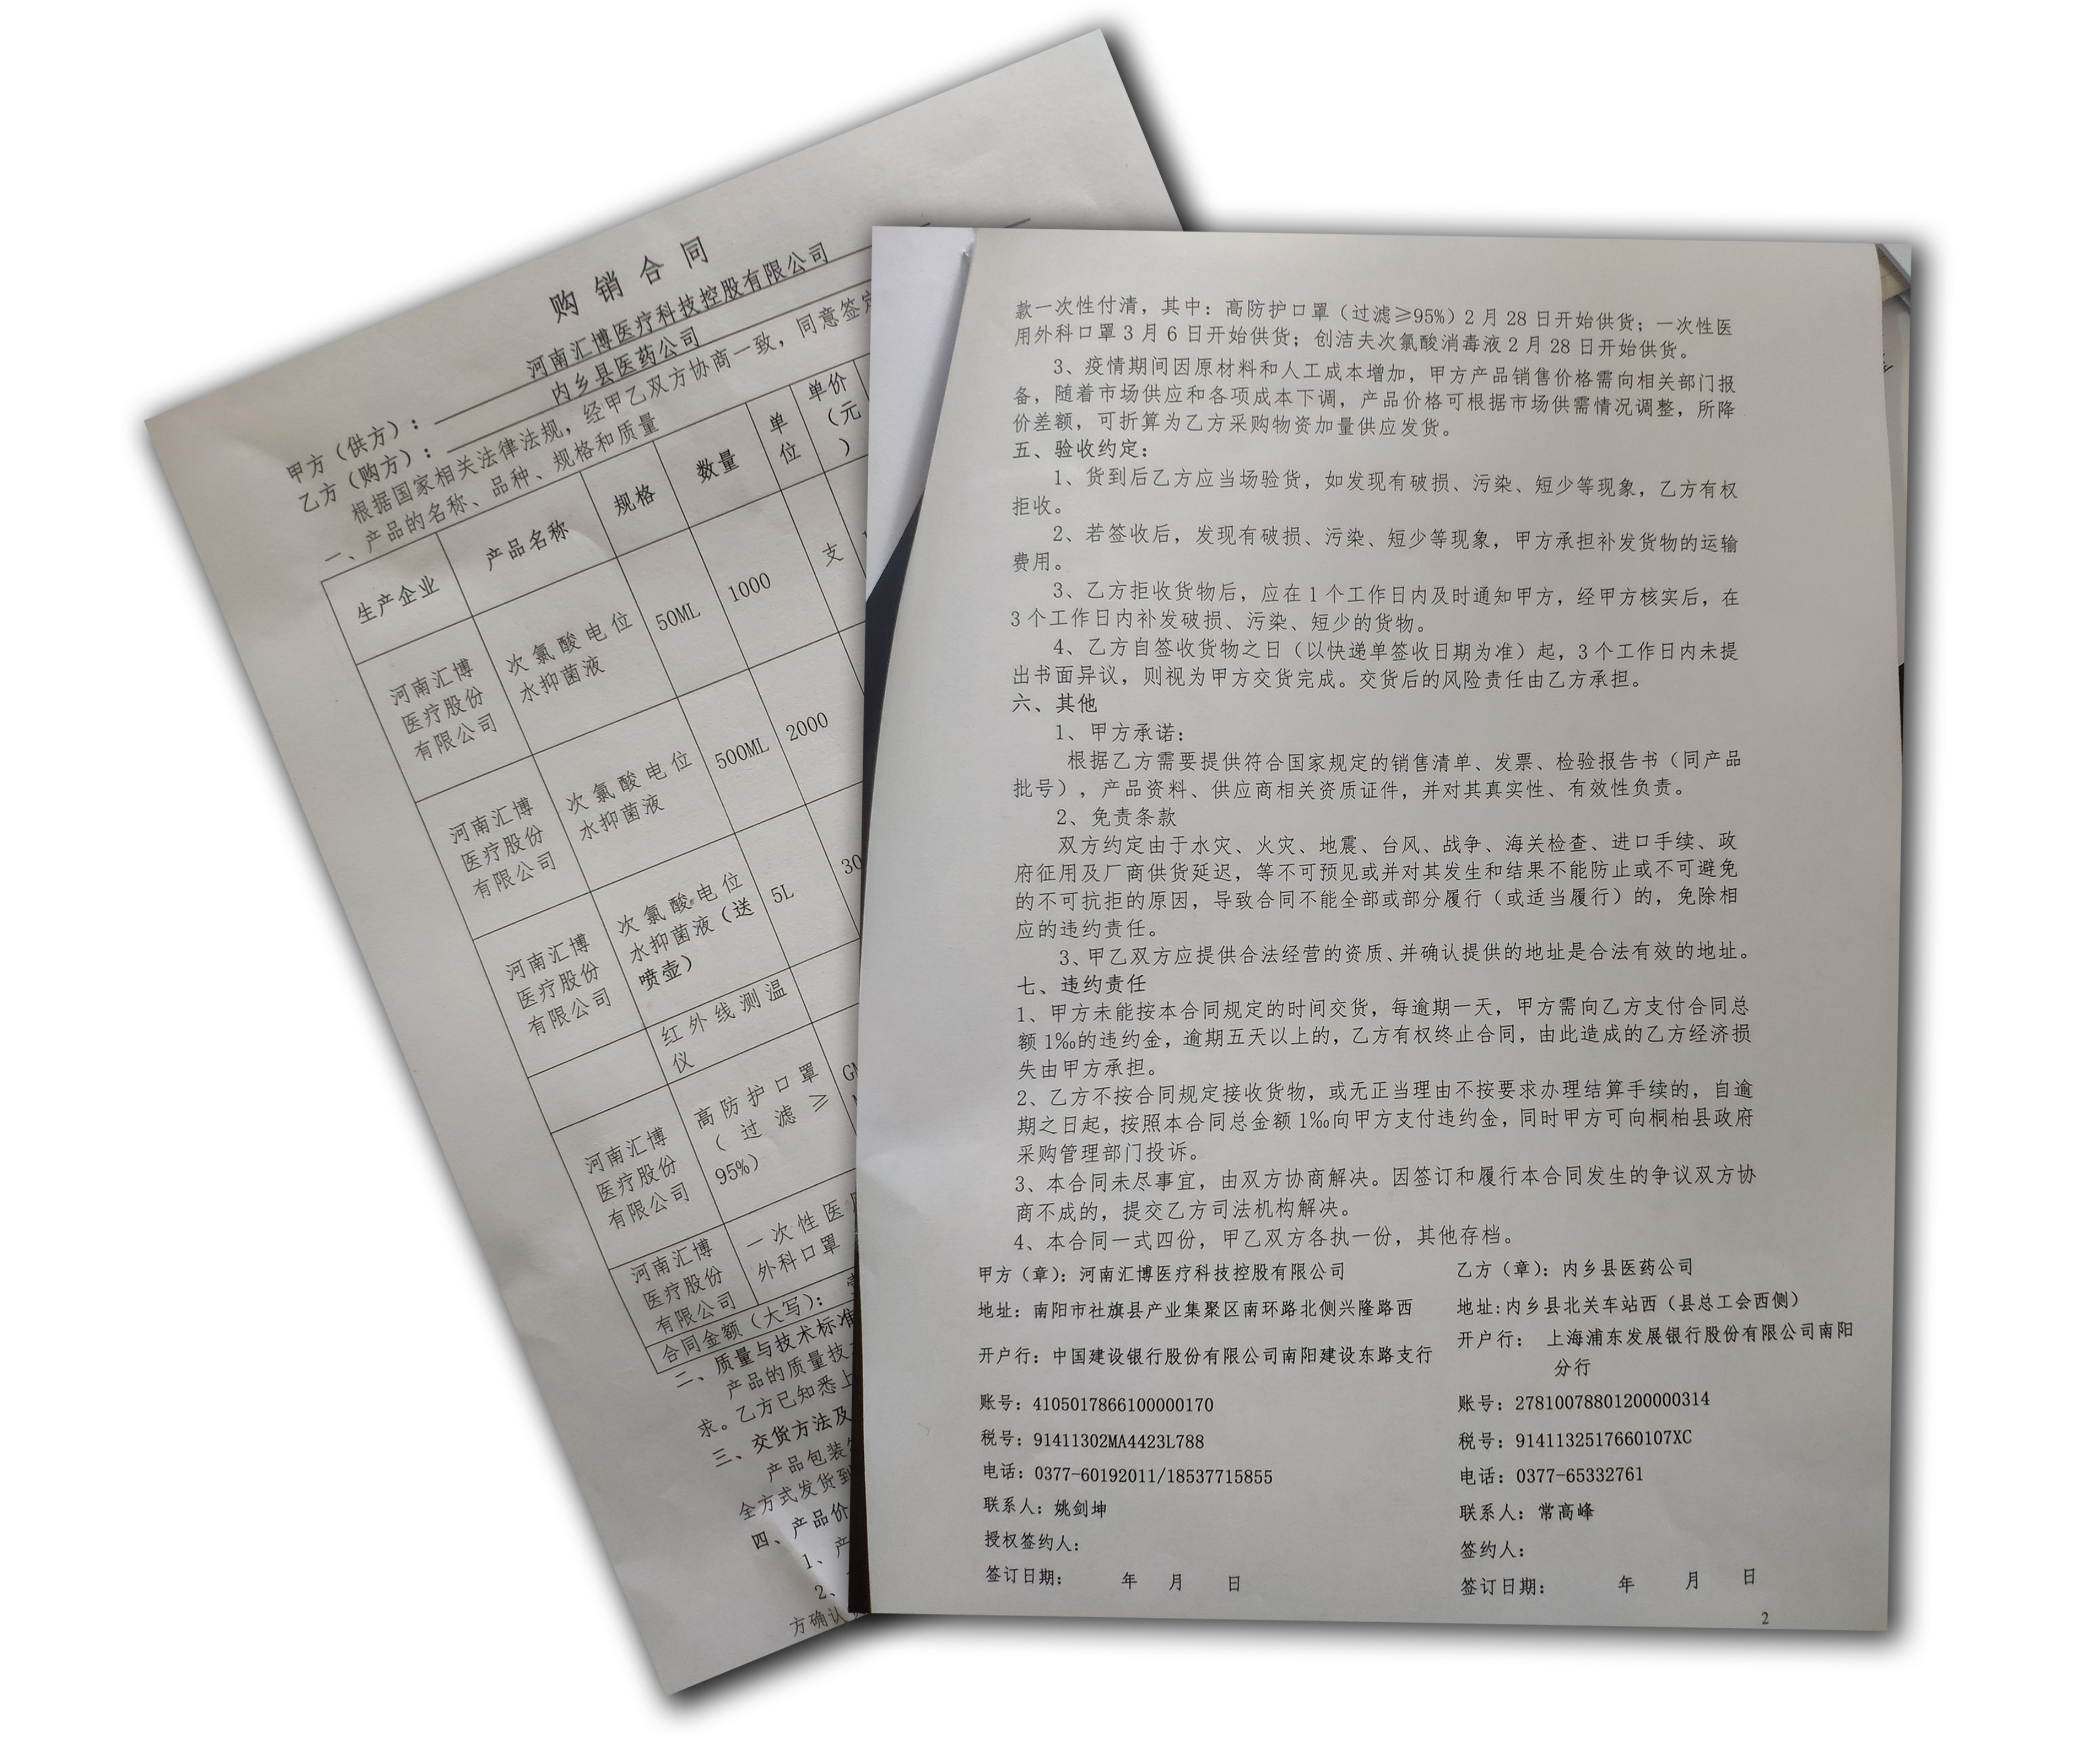 购销合同
甲方（供方）：河南汇博医疗科技控股有限公司
乙方（购方）：内乡县医药公司
根据国家相关法律法规，经甲乙双方协商一致，同意签定
一、产品的名称、品种、规格和质量
生产企业 产品名称 规格 数量 单位 单价（元）
河南汇博医疗股份有限公司 次氯酸电位水抑菌液 50ML 1000 支
河南汇博医疗股份有限公司 次氯酸电位水抑菌液 500ML 2000
河南汇博医疗股份有限公司 次氯酸电位水抑菌液（送喷壶） 5L 30
红外线测温仪
河南汇博医疗股份有限公司 高防护口罩（过滤≥95%）
河南汇博医疗股份有限公司 一次性医 外科口罩
合同金额（大写）：
二、质量与技术标准
产品的质量技
求。乙方已知悉上
三、交货方法及
产品包装
全方式发货到
四、产品价
1、产
2、
方确认
款一次性付清，其中：高防护口罩（过滤≥95%）2月28日开始供货；一次性医
用外科口罩3月6日开始供货；创洁夫次氯酸消毒液2月28日开始供货。
3、疫情期间因原材料和人工成本增加，甲方产品销售价格需向相关部门报
备，随着市场供应和各项成本下调，产品价格可根据市场供需情况调整，所降
价差额，可折算为乙方采购物资加量供应发货。
五、验收约定：
1、货到后乙方应当场验货，如发现有破损、污染、短少等现象，乙方有权
拒收。
2、若签收后，发现有破损、污染、短少等现象，甲方承担补发货物的运输
费用。
3、乙方拒收货物后，应在1个工作日内及时通知甲方，经甲方核实后，在
3个工作日内补发破损、污染、短少的货物。
4、乙方自签收货物之日（以快递单签收日期为准）起，3个工作日内未提
出书面异议，则视为甲方交货完成。交货后的风险责任由乙方承担。
六、其他
1、甲方承诺：
根据乙方需要提供符合国家规定的销售清单、发票、检验报告书（同产品
批号），产品资料、供应商相关资质证件，并对其真实性、有效性负责。
2、免责条款
双方约定由于水灾、火灾、地震、台风、战争、海关检查、进口手续、政
府征用及厂商供货延迟，等不可预见或并对其发生和结果不能防止或不可避免
的不可抗拒的原因，导致合同不能全部或部分履行（或适当履行）的，免除相
应的违约责任。
3、甲乙双方应提供合法经营的资质、并确认提供的地址是合法有效的地址。
七、违约责任
1、甲方未能按本合同规定的时间交货，每逾期一天，甲方需向乙方支付合同总
额1‰的违约金，逾期五天以上的，乙方有权终止合同，由此造成的乙方经济损
失由甲方承担。
2、乙方不按合同规定接收货物，或无正当理由不按要求办理结算手续的，自逾
期之日起，按照本合同总金额1‰向甲方支付违约金，同时甲方可向桐柏县政府
采购管理部门投诉。
3、本合同未尽事宜，由双方协商解决。因签订和履行本合同发生的争议双方协
商不成的，提交乙方司法机构解决。
4、本合同一式四份，甲乙双方各执一份，其他存档。
甲方（章）：河南汇博医疗科技控股有限公司
地址：南阳市社旗县产业集聚区南环路北侧兴隆路西
开户行：中国建设银行股份有限公司南阳建设东路支行
账号：4105017866100000170
税号：91411302MA4423L788
电话：0377-60192011/18537715855
联系人：姚剑坤
授权签约人：
签订日期： 年 月 日
乙方（章）：内乡县医药公司
地址：内乡县北关车站西（县总工会西侧）
开户行： 上海浦东发展银行股份有限公司南阳
分行
账号：27810078801200000314
税号：9141132517660107XC
电话：0377-65332761
联系人：常高峰
签约人：
签订日期： 年 月 日
2